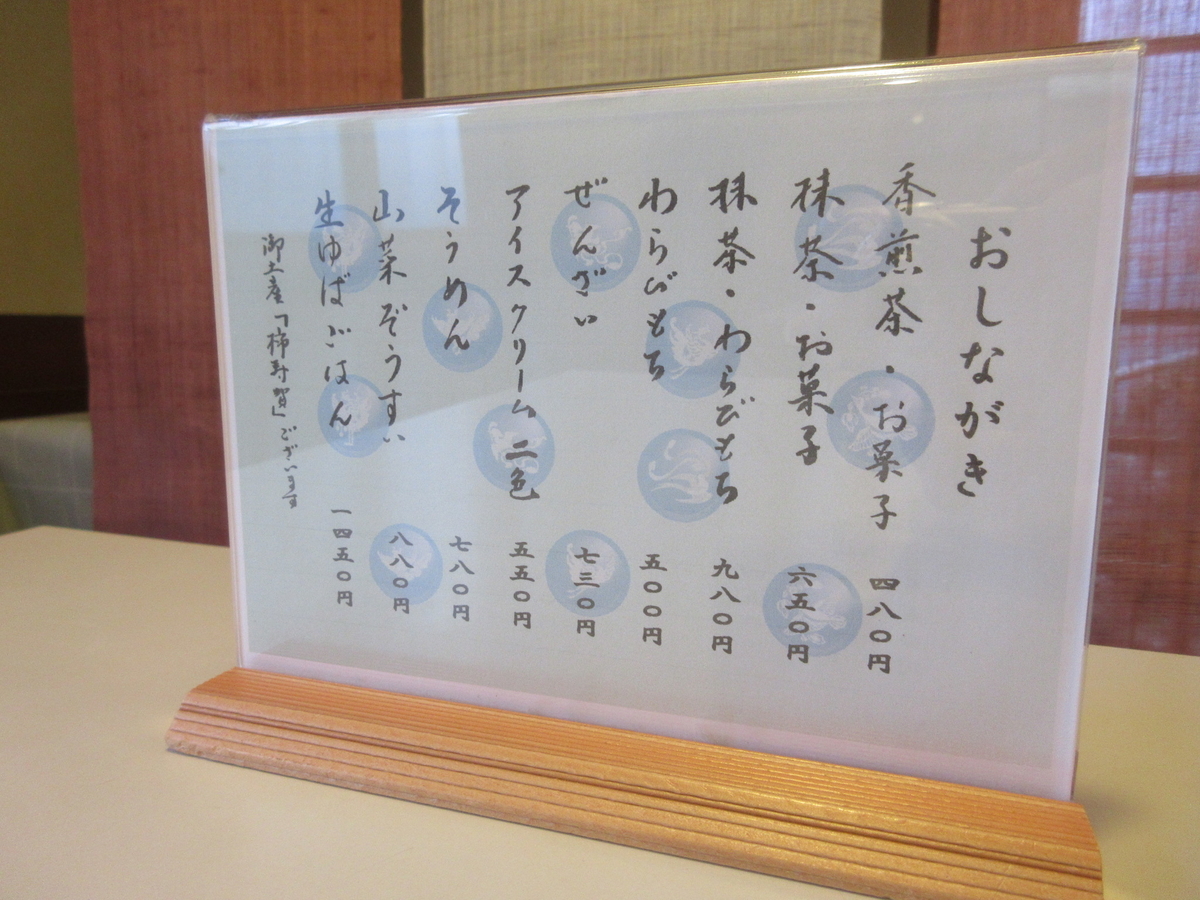 おしながき
香煎茶・お菓子 四八〇円
抹茶・お菓子 六五〇円
抹茶・わらびもち 九八〇円
わらびもち 五〇〇円
ぜんざい 七三〇円
アイスクリーム 二色 五五〇円
そうめん 七八〇円
山菜ぞうすい 八八〇円
生ゆばごはん 一四五〇円
御土産「柿寿賀」ございます